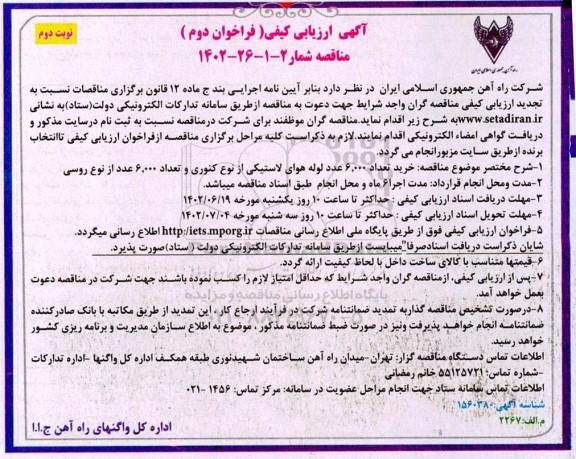 آگهی ارزیابی کیفی( فراخوان دوم )
نوبت دوم
مناقصه شمار۲-۱-۲۶-۱۴۰۲
راه آهن جمهوری اسلامی ایران
شرکت راه آهن جمهوری اسلامی ایران در نظر دارد بنابر آیین نامه اجرایی بند ج ماده ۱۲ قانون برگزاری مناقصات نسبت به
تجدید ارزیابی کیفی مناقصه گران واجد شرایط جهت دعوت به مناقصه ازطریق سامانه تدارکات الکترونیکی دولت(ستاد)به نشانی
www.setadiran.irبه شرح زیر اقدام نماید.مناقصه گران موظفند برای شرکت درمناقصه نسبت به ثبت نام درسایت مذکور و
دریافت گواهی امضاء الکترونیکی اقدام نمایند.لازم به ذکراست کلیه مراحل برگزاری مناقصه ازفراخوان ارزیابی کیفی تاانتخاب
برنده ازطریق سایت مزبورانجام می گردد.
۱-شرح مختصر موضوع مناقصه: خرید تعداد ۶,۰۰۰ عدد لوله هوای لاستیکی از نوع کنوری و تعداد ۶,۰۰۰ عدد از نوع روسی
۲-مدت ومحل انجام قرارداد: مدت اجرا۶ ماه و محل انجام طبق اسناد مناقصه میباشد.
۳-مهلت دریافت اسناد ارزیابی کیفی : حداکثر تا ساعت ۱۰ روز یکشنبه مورخه ۱۴۰۲/۰۶/۱۹
۴-مهلت تحویل اسناد ارزیابی کیفی : حداکثر تا ساعت ۱۰ روز سه شنبه مورخه ۱۴۰۲/۰۷/۰۴
۵-فراخوان ارزیابی کیفی فوق از طریق پایگاه ملی اطلاع رسانی مناقصات http:/iets.mporg.ir اطلاع رسانی میگردد.
شایان ذکراست دریافت اسنادصرفا"میبایست ازطریق سامانه تدارکات الکترونیکی دولت(ستاد)صورت پذیرد.
۶-قیمتها متناسب با کالای ساخت داخل با لحاظ کیفیت ارائه گردد.
۷-پس از ارزیابی کیفی، ازمناقصه گران واجد شرایط که حداقل امتیاز لازم را کسب نموده باشند جهت شرکت در مناقصه دعوت
بعمل خواهد آمد.
۸-درصورت تشخیص مناقصه گذاربه تمدید ضمانتنامه شرکت در فرآیند ارجاع کار ، این تمدید از طریق مکاتبه با بانک صادرکننده
ضمانتنامه انجام خواهد پذیرفت ونیز در صورت ضبط ضمانتنامه مذکور ، موضوع به اطلاع سازمان مدیریت و برنامه ریزی کشور
خواهد رسید.
اطلاعات تماس دستگاه مناقصه گزار: تهران-میدان راه آهن ساختمان شهیدنوری طبقه همکف اداره کل واگنها -اداره تدارکات
-شماره تماس؛ ۵۵۱۲۵۷۲۱ خانم رمضانی
اطلاعات تماس سامانه ستاد جهت انجام مراحل عضویت در سامانه: مرکز تماس: ۱۴۵۶ -۰۲۱
شناسه آگهی:۱۵۶۰۳۸۰
م.الف:۲۲۶۷
اداره کل واگنهای راه آهن ج.ا.ا
پایگاه اطلاع رسانی مناقصه و مزایده